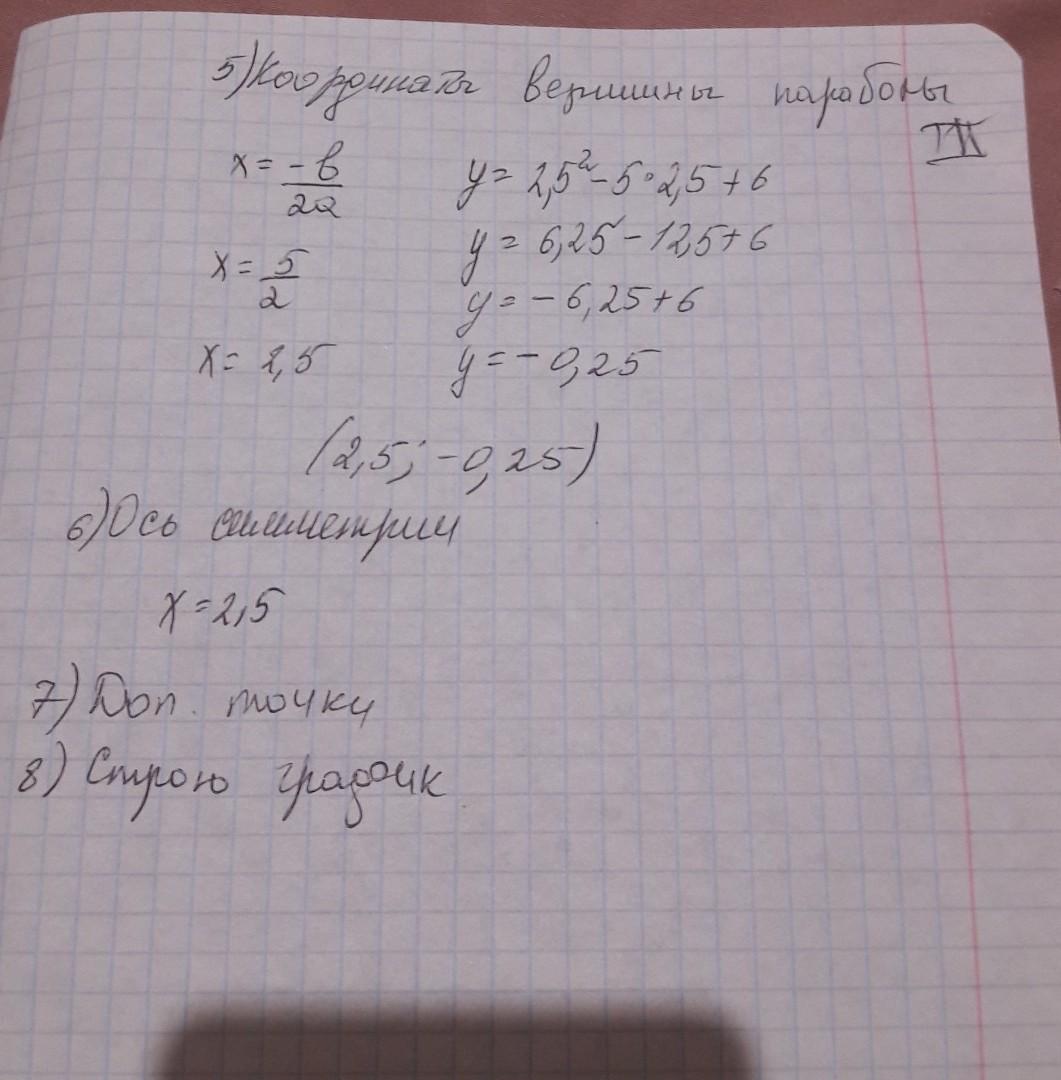 5) Координаты вершины парабоны
III
x = -b/2a
y = 2,5² - 5 · 2,5 + 6
y = 6,25 - 12,5 + 6
x = 5/2
y = - 6,25 + 6
x = 2,5
y = - 0,25
(2,5; -0,25)
6) Ось симметрии
x = 2,5
7) Доп. точки
8) Строю график